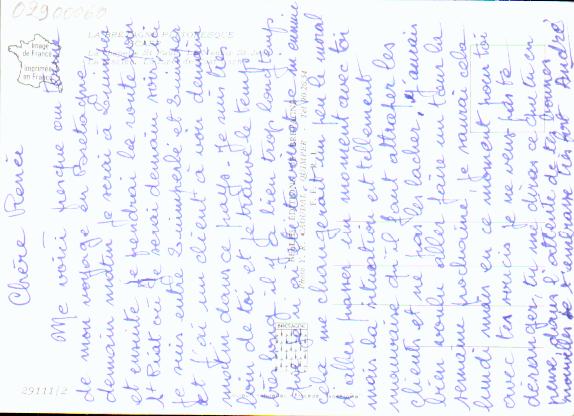 02900060
LA BRETAGNE PITTORESQUE
Image de France
Imprimé en France
BRETAGNE
29111/2
Chère Renée
Me voici presque au terme
de mon voyage en Bretagne,
demain matin je serai à Quimper
et ensuite je prendrai la route pour
St Priest où je serai demain soir. Ici
je suis entre Quimperlé et Quimper
et j'ai un client à voir demain
matin dans ce pays. Je suis très
loin de toi et je trouve le temps
très long, il y a bien trop longtemps
que je n'ai
cela me changerait un peu le moral
d'aller passer un moment avec toi
mais la situation est tellement
mauvaise qu'il faut attraper les
clients et ne pas les lacher, j'aurais
bien voulu aller faire un tour la
semaine prochaine je saurai cela
lundi mais en ce moment pour toi
avec tes soucis je ne veux pas te
déranger, tu me diras ce qu'il en
pense, dans l'attente de tes bonnes
nouvelles je t'embrasse très fort André